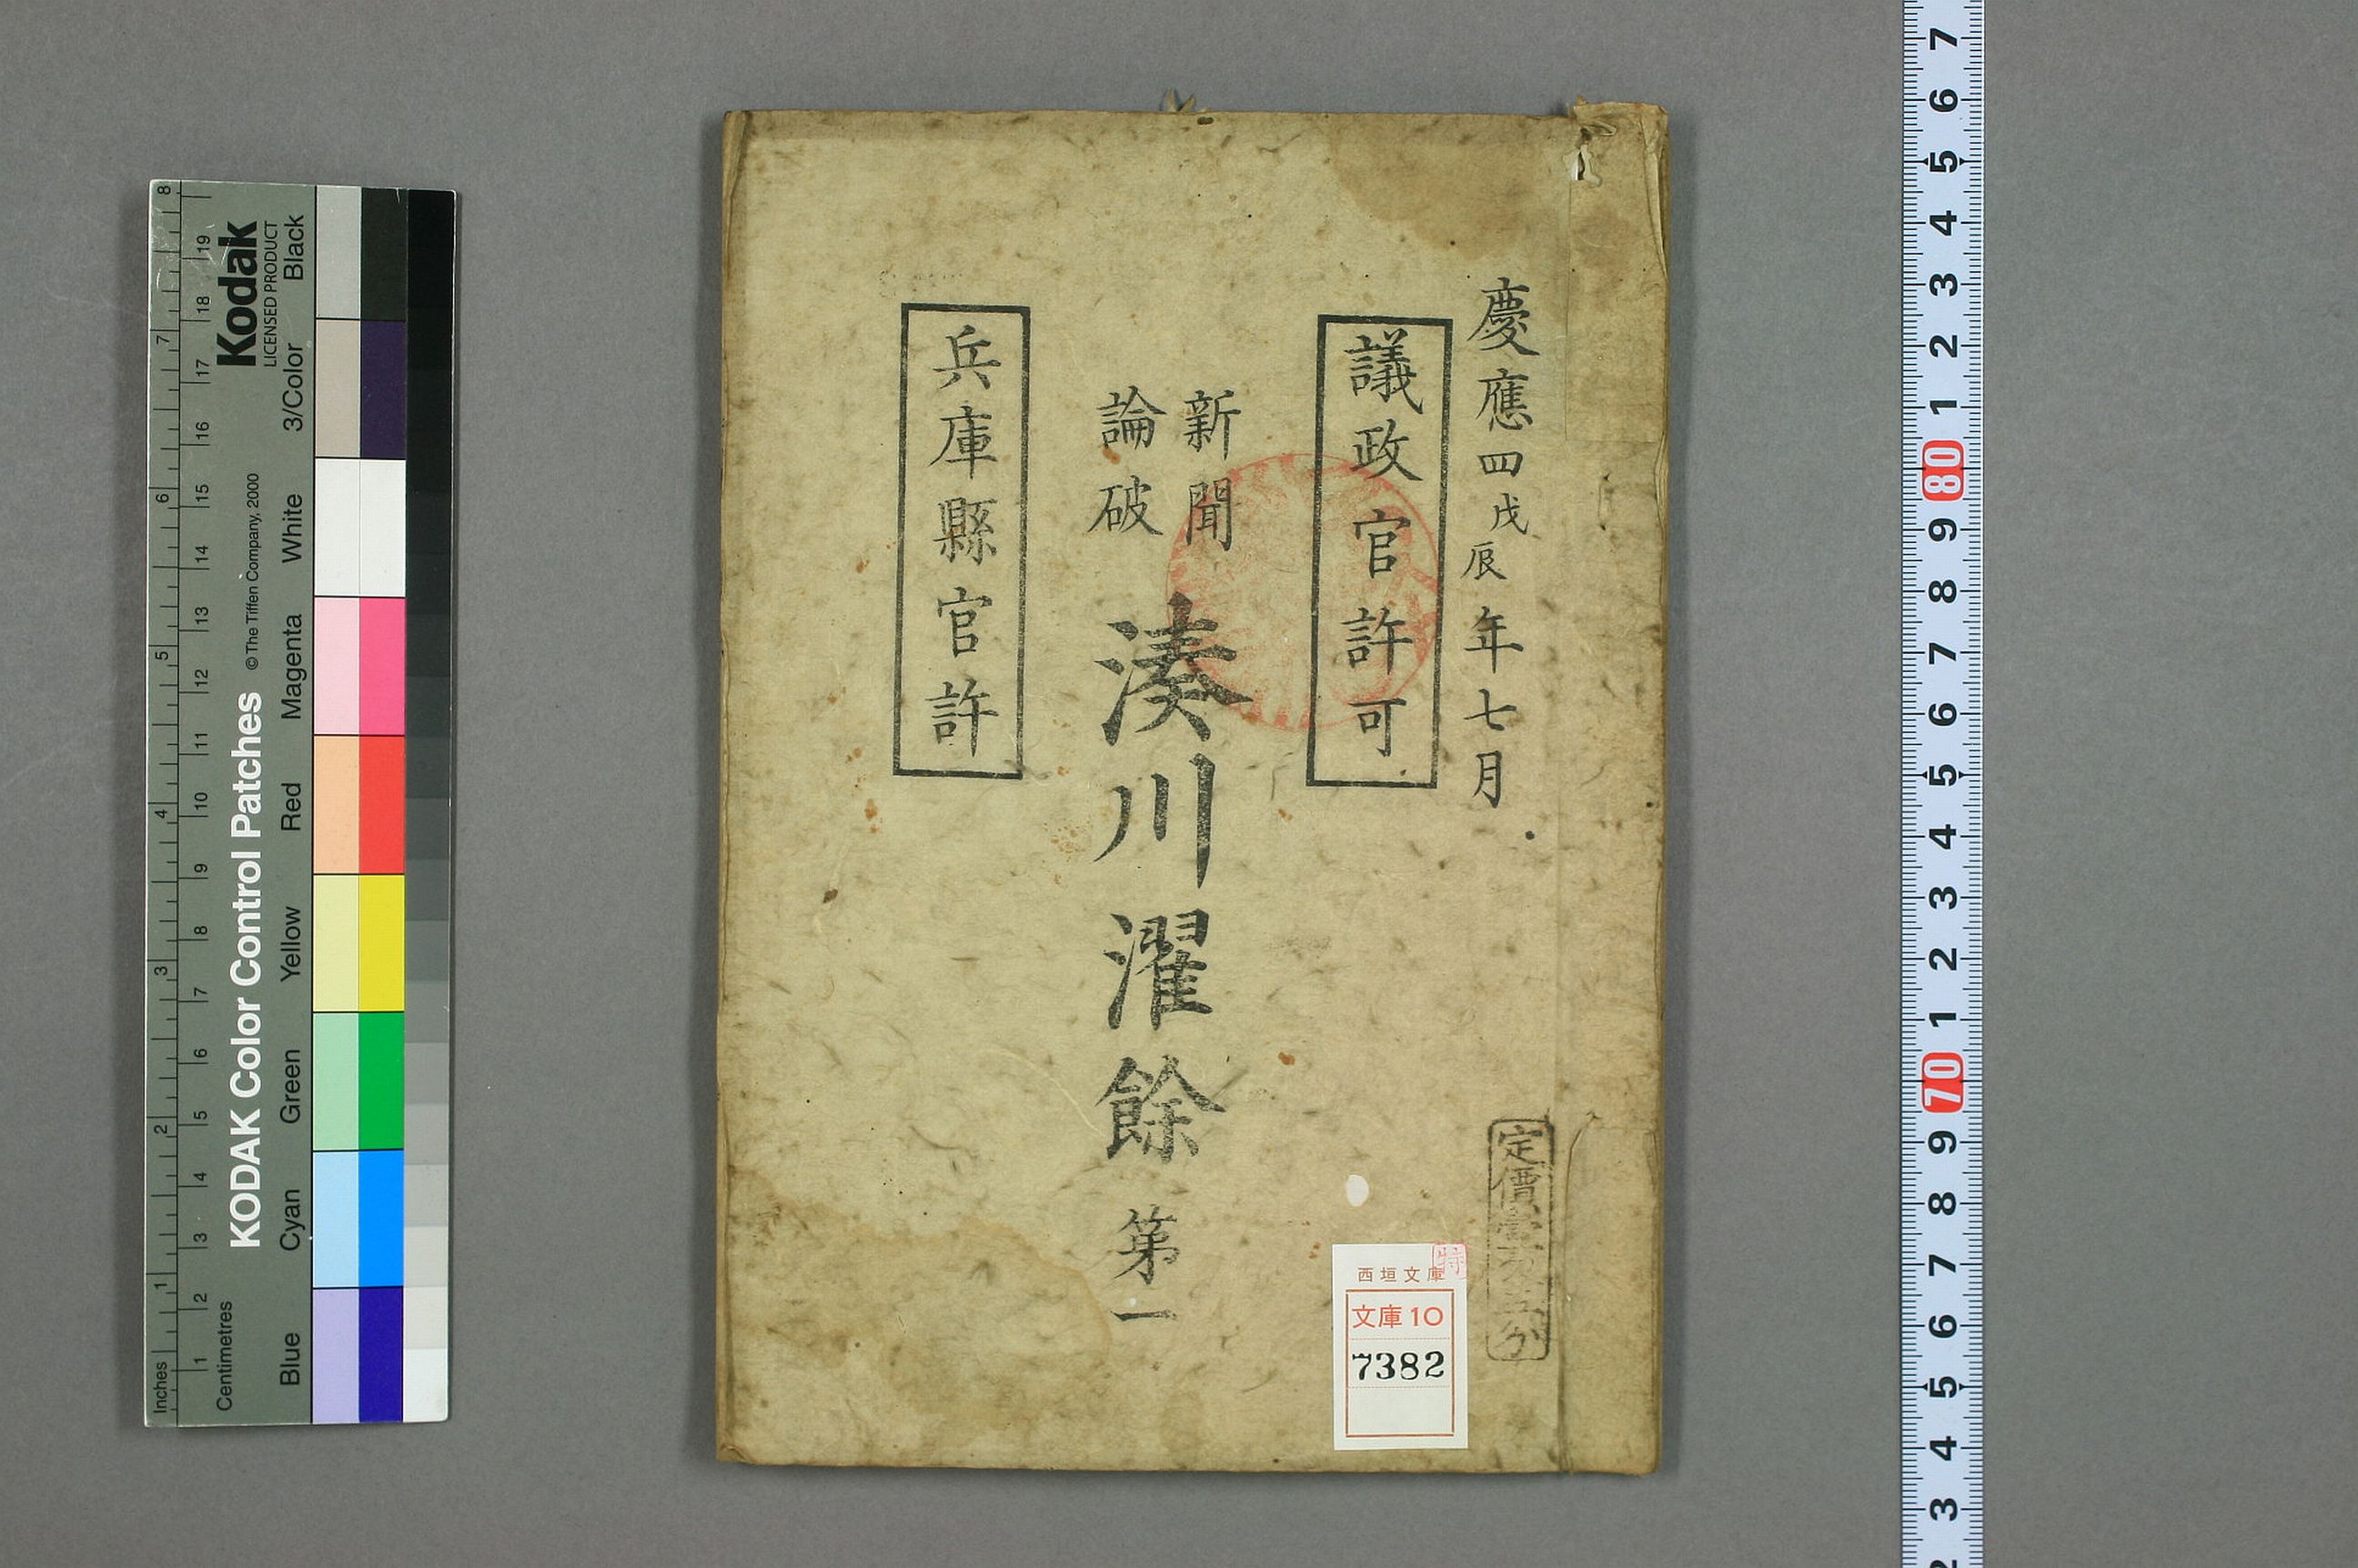 慶應四戊辰年七月
議政官許可
新聞
論破
湊川濯餘 第一
兵庫縣官許
定價
西垣文庫
特
文庫10
7382
Kodak
LICENSED PRODUCT
KODAK Color Control Patches
© The Tiffen Company, 2000
Blue Cyan Green Yellow Magenta Red White 3/Color Black
Inches 1 2 3 4 5 6 7 8
Centimetres 1 2 3 4 5 6 7 8 9 10 11 12 13 14 15 16 17 18 19
7 6 5 4 3 2 1 80 9 8 7 6 5 4 3 2 1 70 9 8 7 6 5 4 3 2